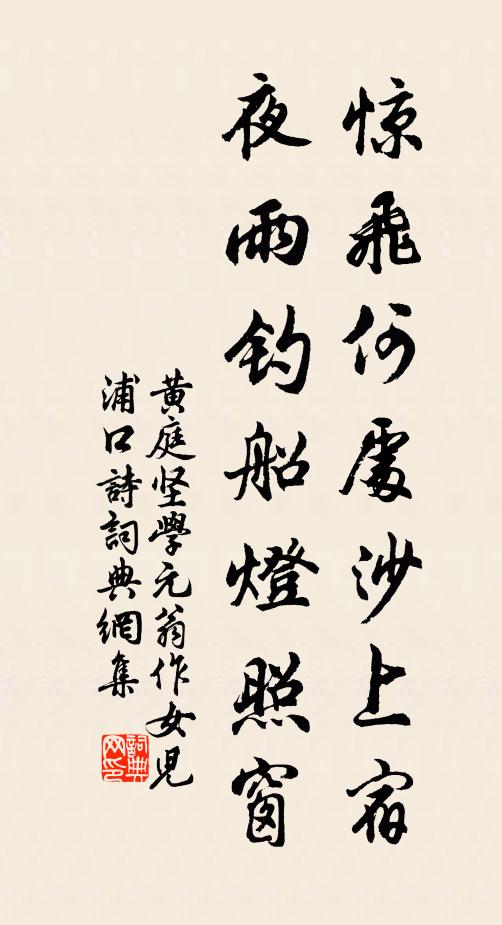 惊飛何處沙上宿
夜雨釣船燈照窗
黄庭坚學元翁作女兒
浦口詩詞典網集
詞典網印